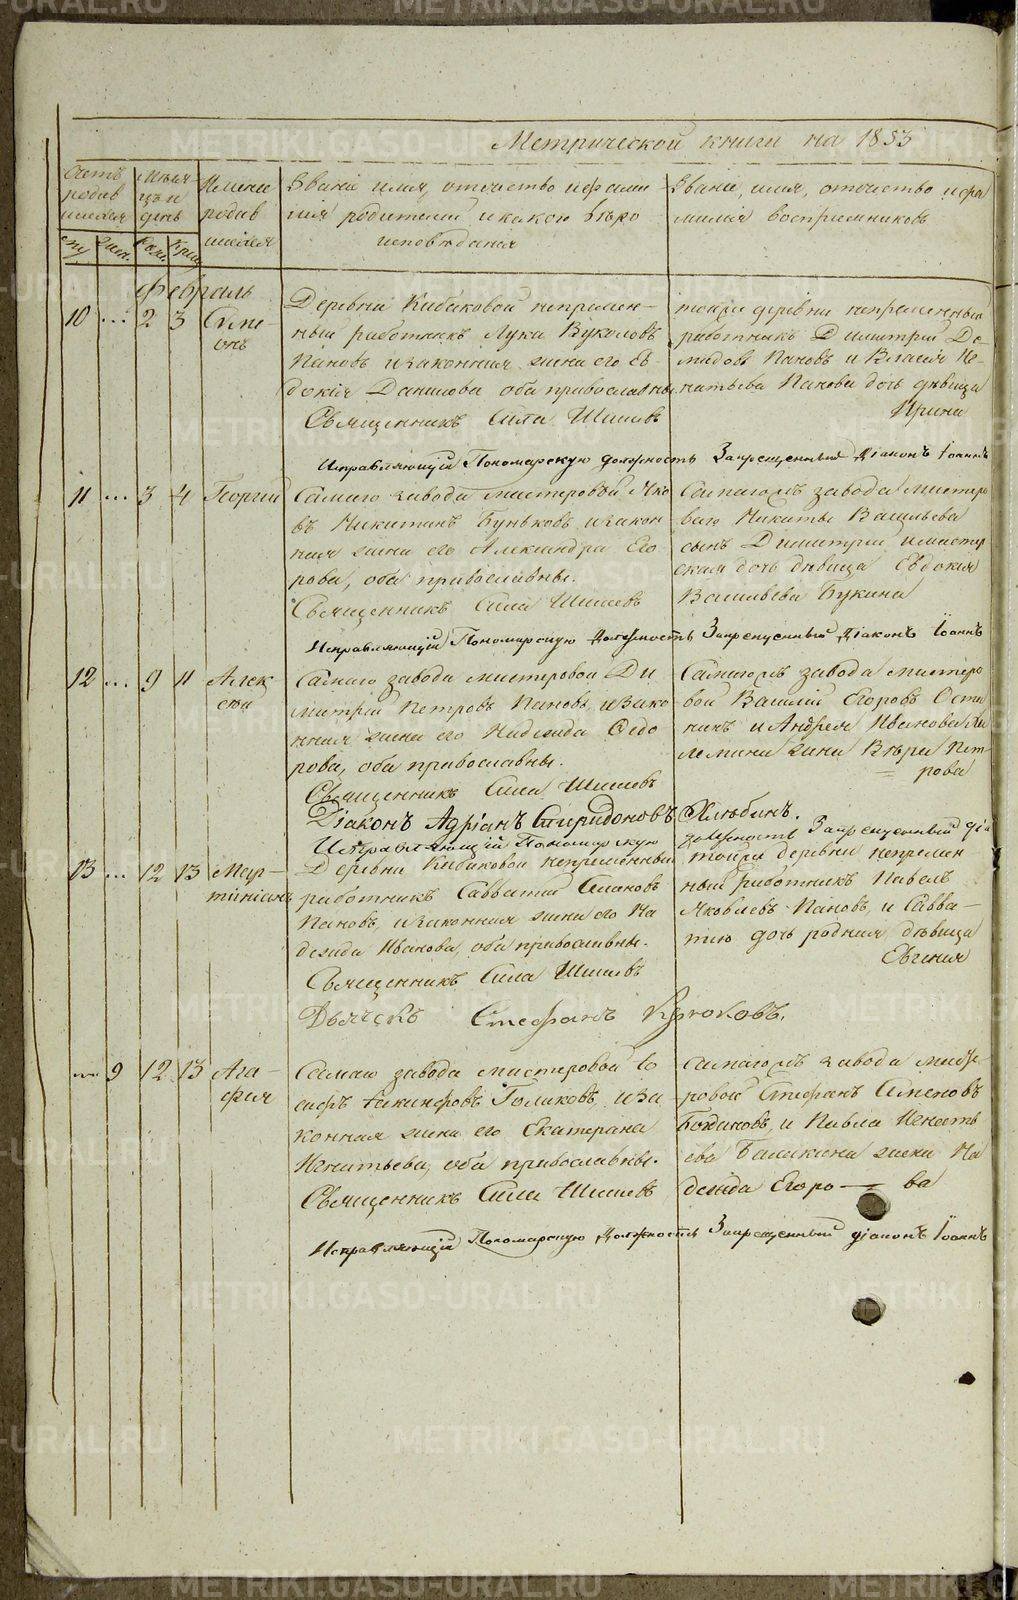 Метрической книги на 1853
Счетъ родив шихся
муж. жен.
Месяцъ и день
рожд. крещ.
Имена родив шихся
Званіе имя, отчество и фами
лія родителей и какого веро
исповѣданія
Званіе, имя, отчество и фа
милія воспріемниковъ
Февраль
10 ... 2 3 Симе-
онъ
Деревни Кабаковой непремен-
ный работникъ Лука Вуколовъ
Пановъ и законная жена его Ев-
докія Данилова оба православны.
Священникъ Сила Шишевъ
тойже деревни непременный
работникъ Димитрій Де-
мидовъ Пановъ и Власія Иг-
натьева Панова дочь девица
Ирина
Исправляющій Пономарскую должность Запрещенный Діаконъ Іоаннъ
11 ... 3 4 Георгій
Самаго завода мастеровой Яко
въ Никитинъ Буньковъ, и закон
ная жена его Александра Его
рова, оба православны.
Священникъ Сила Шишевъ
Самагожъ завода мастеро
ваго Никиты Васильева
сынъ Димитрій и мастер
ская дочь девица Евдокія
Васильева Букина
Исправляющій Пономарскую Должность Запрещенный Діаконъ Іоаннъ
12 ... 9 11 Алек
сей
Самаго завода мастеровой Ди
митрій Петровъ Пановъ, и зако
нная жена его Надежда Федо
рова, оба православны.
Священникъ Сила Шишевъ
Самагожъ завода мастеро
вой Василій Егоровъ Оста
нинъ и Андрея Иванова
жена Вера Пет
рова
Діаконъ Адріанъ Спиридоновъ Хлюбинъ.
Исправляющій Пономарскую должность Запрещенный діа
13 ... 12 13 Мар-
тиніанъ
Деревни Кабаковой непременный
работникъ Савватій
Пановъ, и законная жена его На
дежда Иванова, оба православны.
Священникъ Сила Шишевъ
тойже деревни непремен
ный работникъ Павелъ
Яковлевъ Пановъ, и Савва-
тію дочь родная, девица
Евгенія
Дьячекъ Стефанъ Крюковъ.
9 12 13 Ага-
фія
Самаго завода мастеровой Іо
сифъ Акинфовъ Голиковъ, и за
конная жена его Екатерина
Игнатьева, оба православны.
Священникъ Сила Шишевъ
самагожъ завода масте
ровой Стефанъ Семеновъ
и Павла Игнать
ева Балакина жена На
дежда Егоро — ва
Исправляющій Пономарскую Должность Запрещенный діаконъ Іоаннъ
METRIKI.GASO-URAL.RU